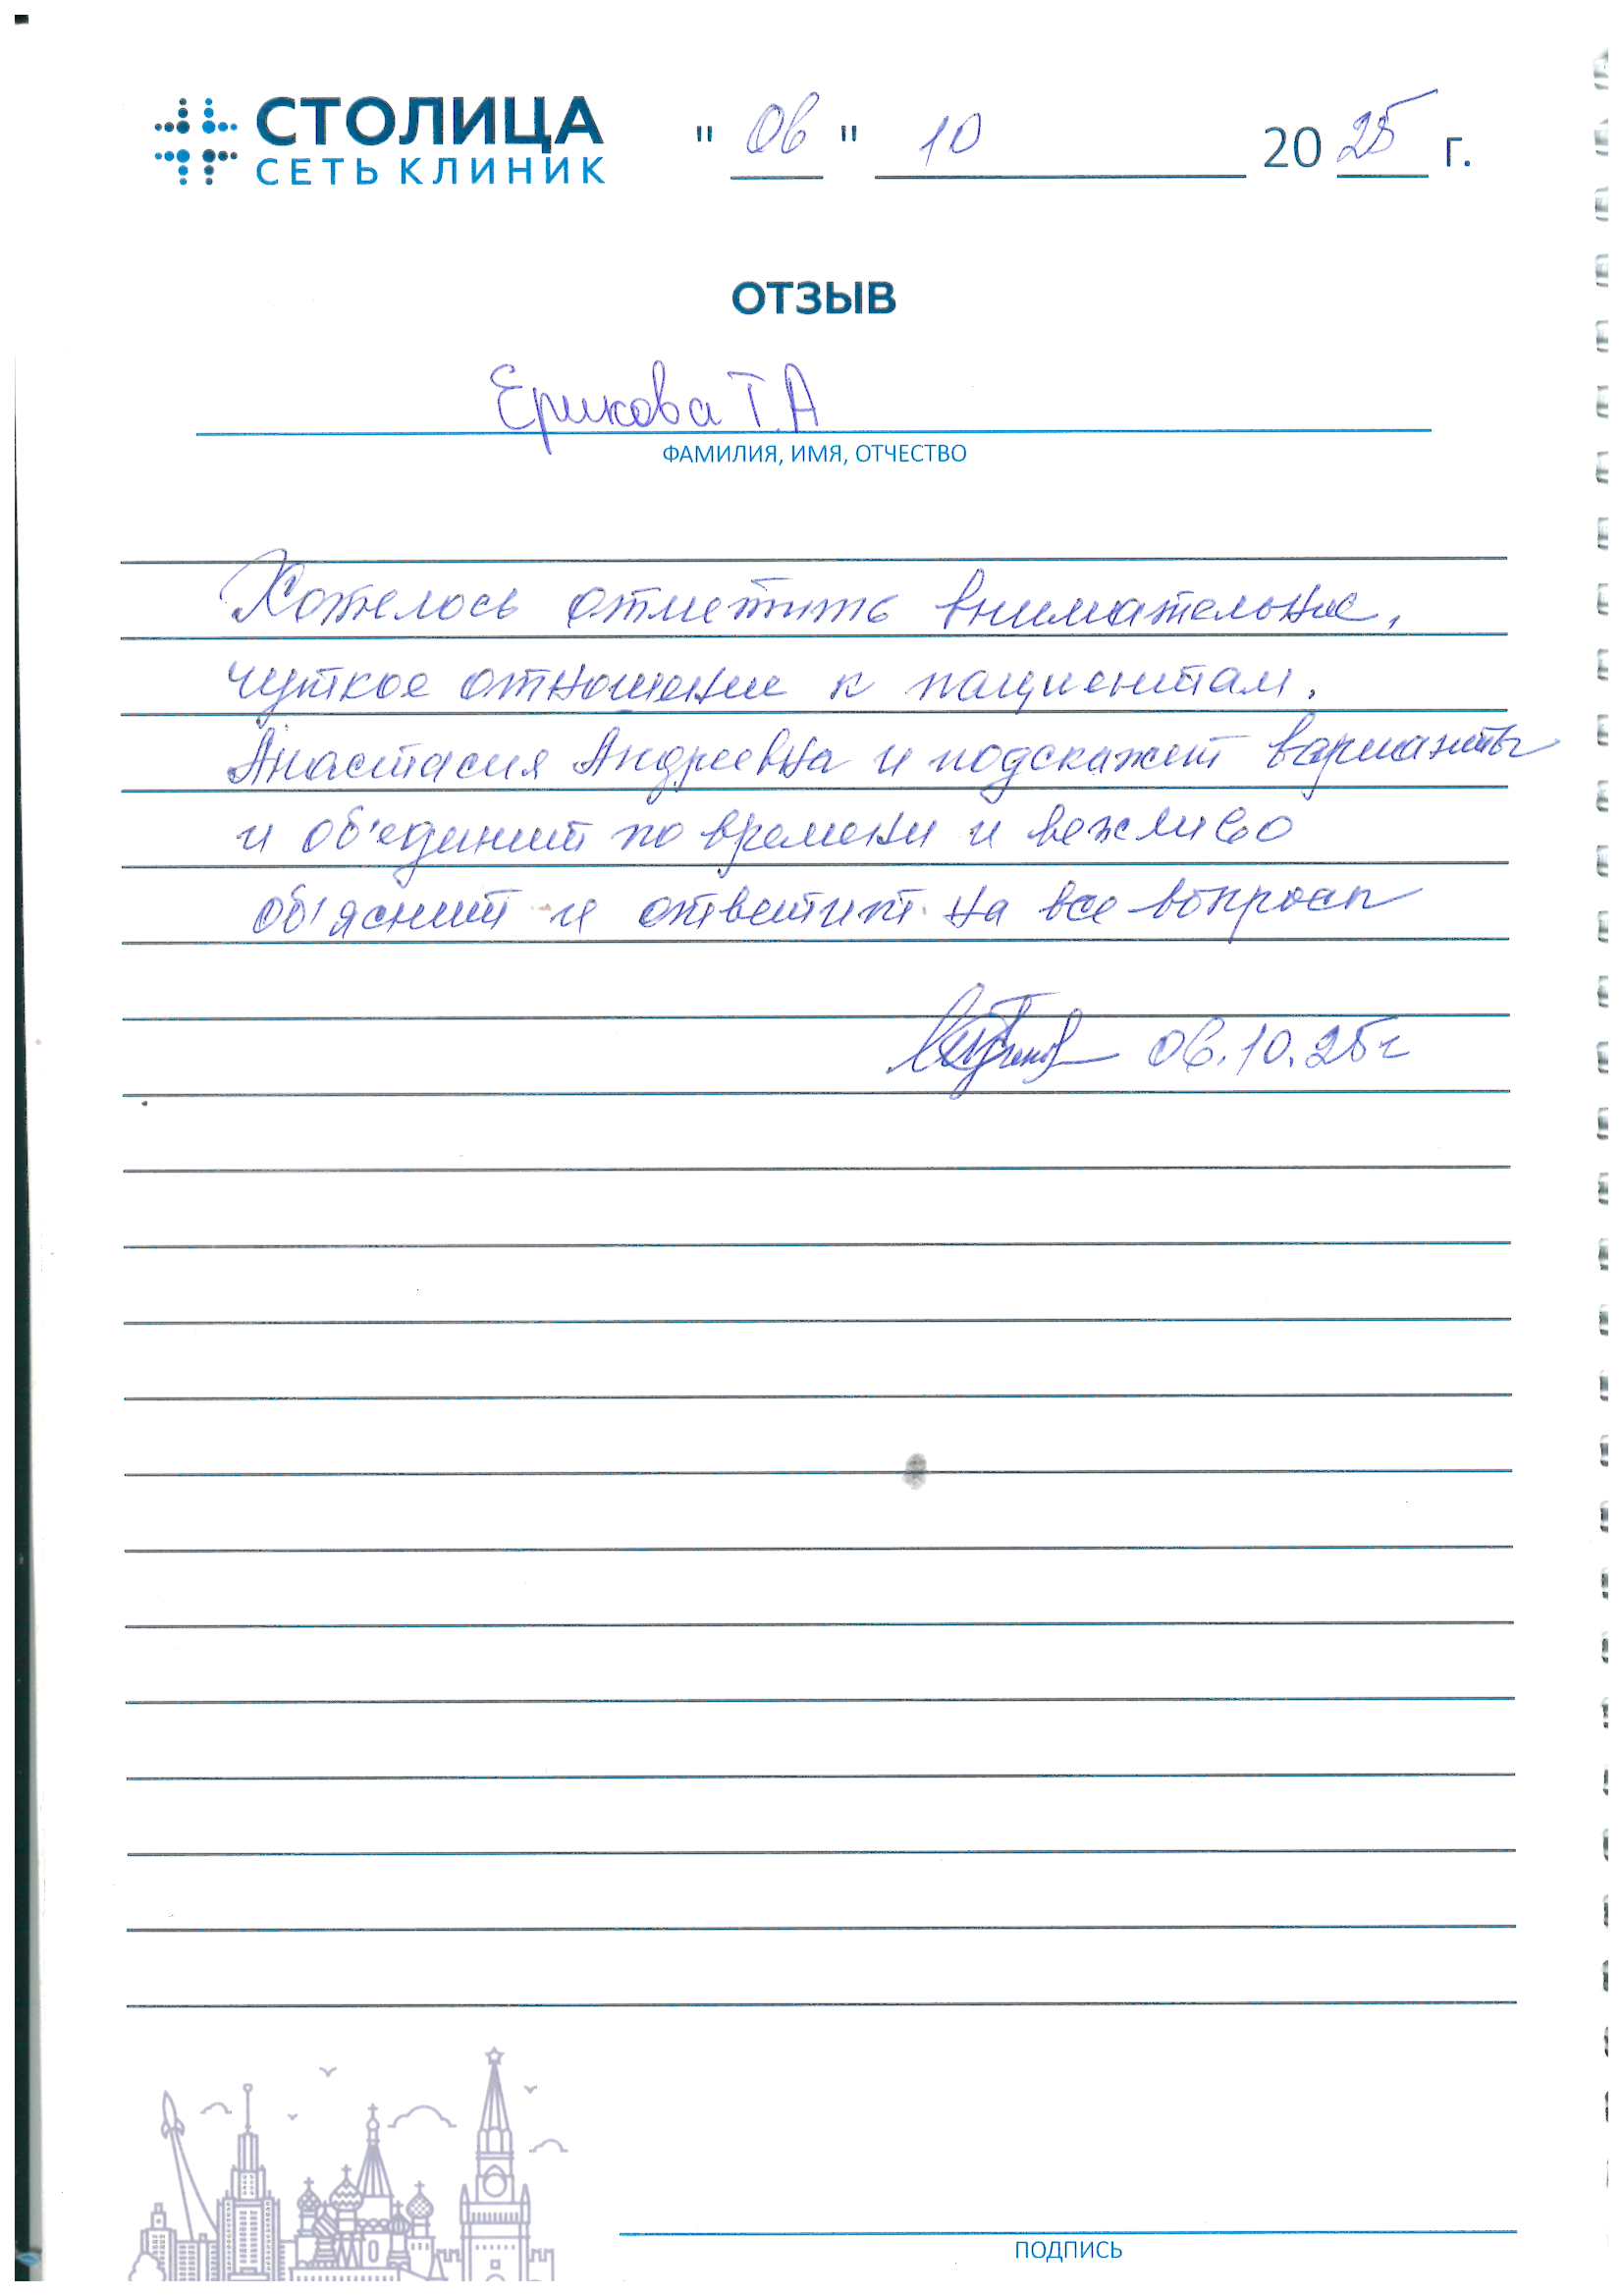 СТОЛИЦА
СЕТЬ КЛИНИК
" 06 " 10 2025 г.
ОТЗЫВ
Ерикова Т.А
ФАМИЛИЯ, ИМЯ, ОТЧЕСТВО
Хотелось отметить внимательное,
чуткое отношение к пациентам.
Анастасия Андреевна и подскажет варианты
и об'единит по времени и вежливо
об'яснит и ответит на все вопросы
06.10.25г
ПОДПИСЬ